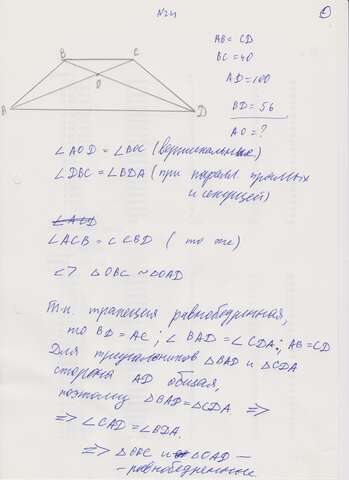 N24
B C
O
A D
AB = CD
BC = 40
AD = 100
BD = 56
AO = ?
∠AOD = ∠BOC (вертикальные)
∠DBC = ∠BDA (при паралл прямых
и секущей)
∠ACD
∠ACB = ∠CBD ( то же)
<> △OBC ~ △OAD
Т.к. трапеция равнобедренная,
то BD = AC ; ∠BAD = ∠CDA ; AB = CD
Для треугольников △BAD и △CDA
сторона AD общая,
поэтому △BAD = △CDA =>
=> ∠CAD = ∠BDA.
=> △BOC и △OAD —
- равнобедренные.